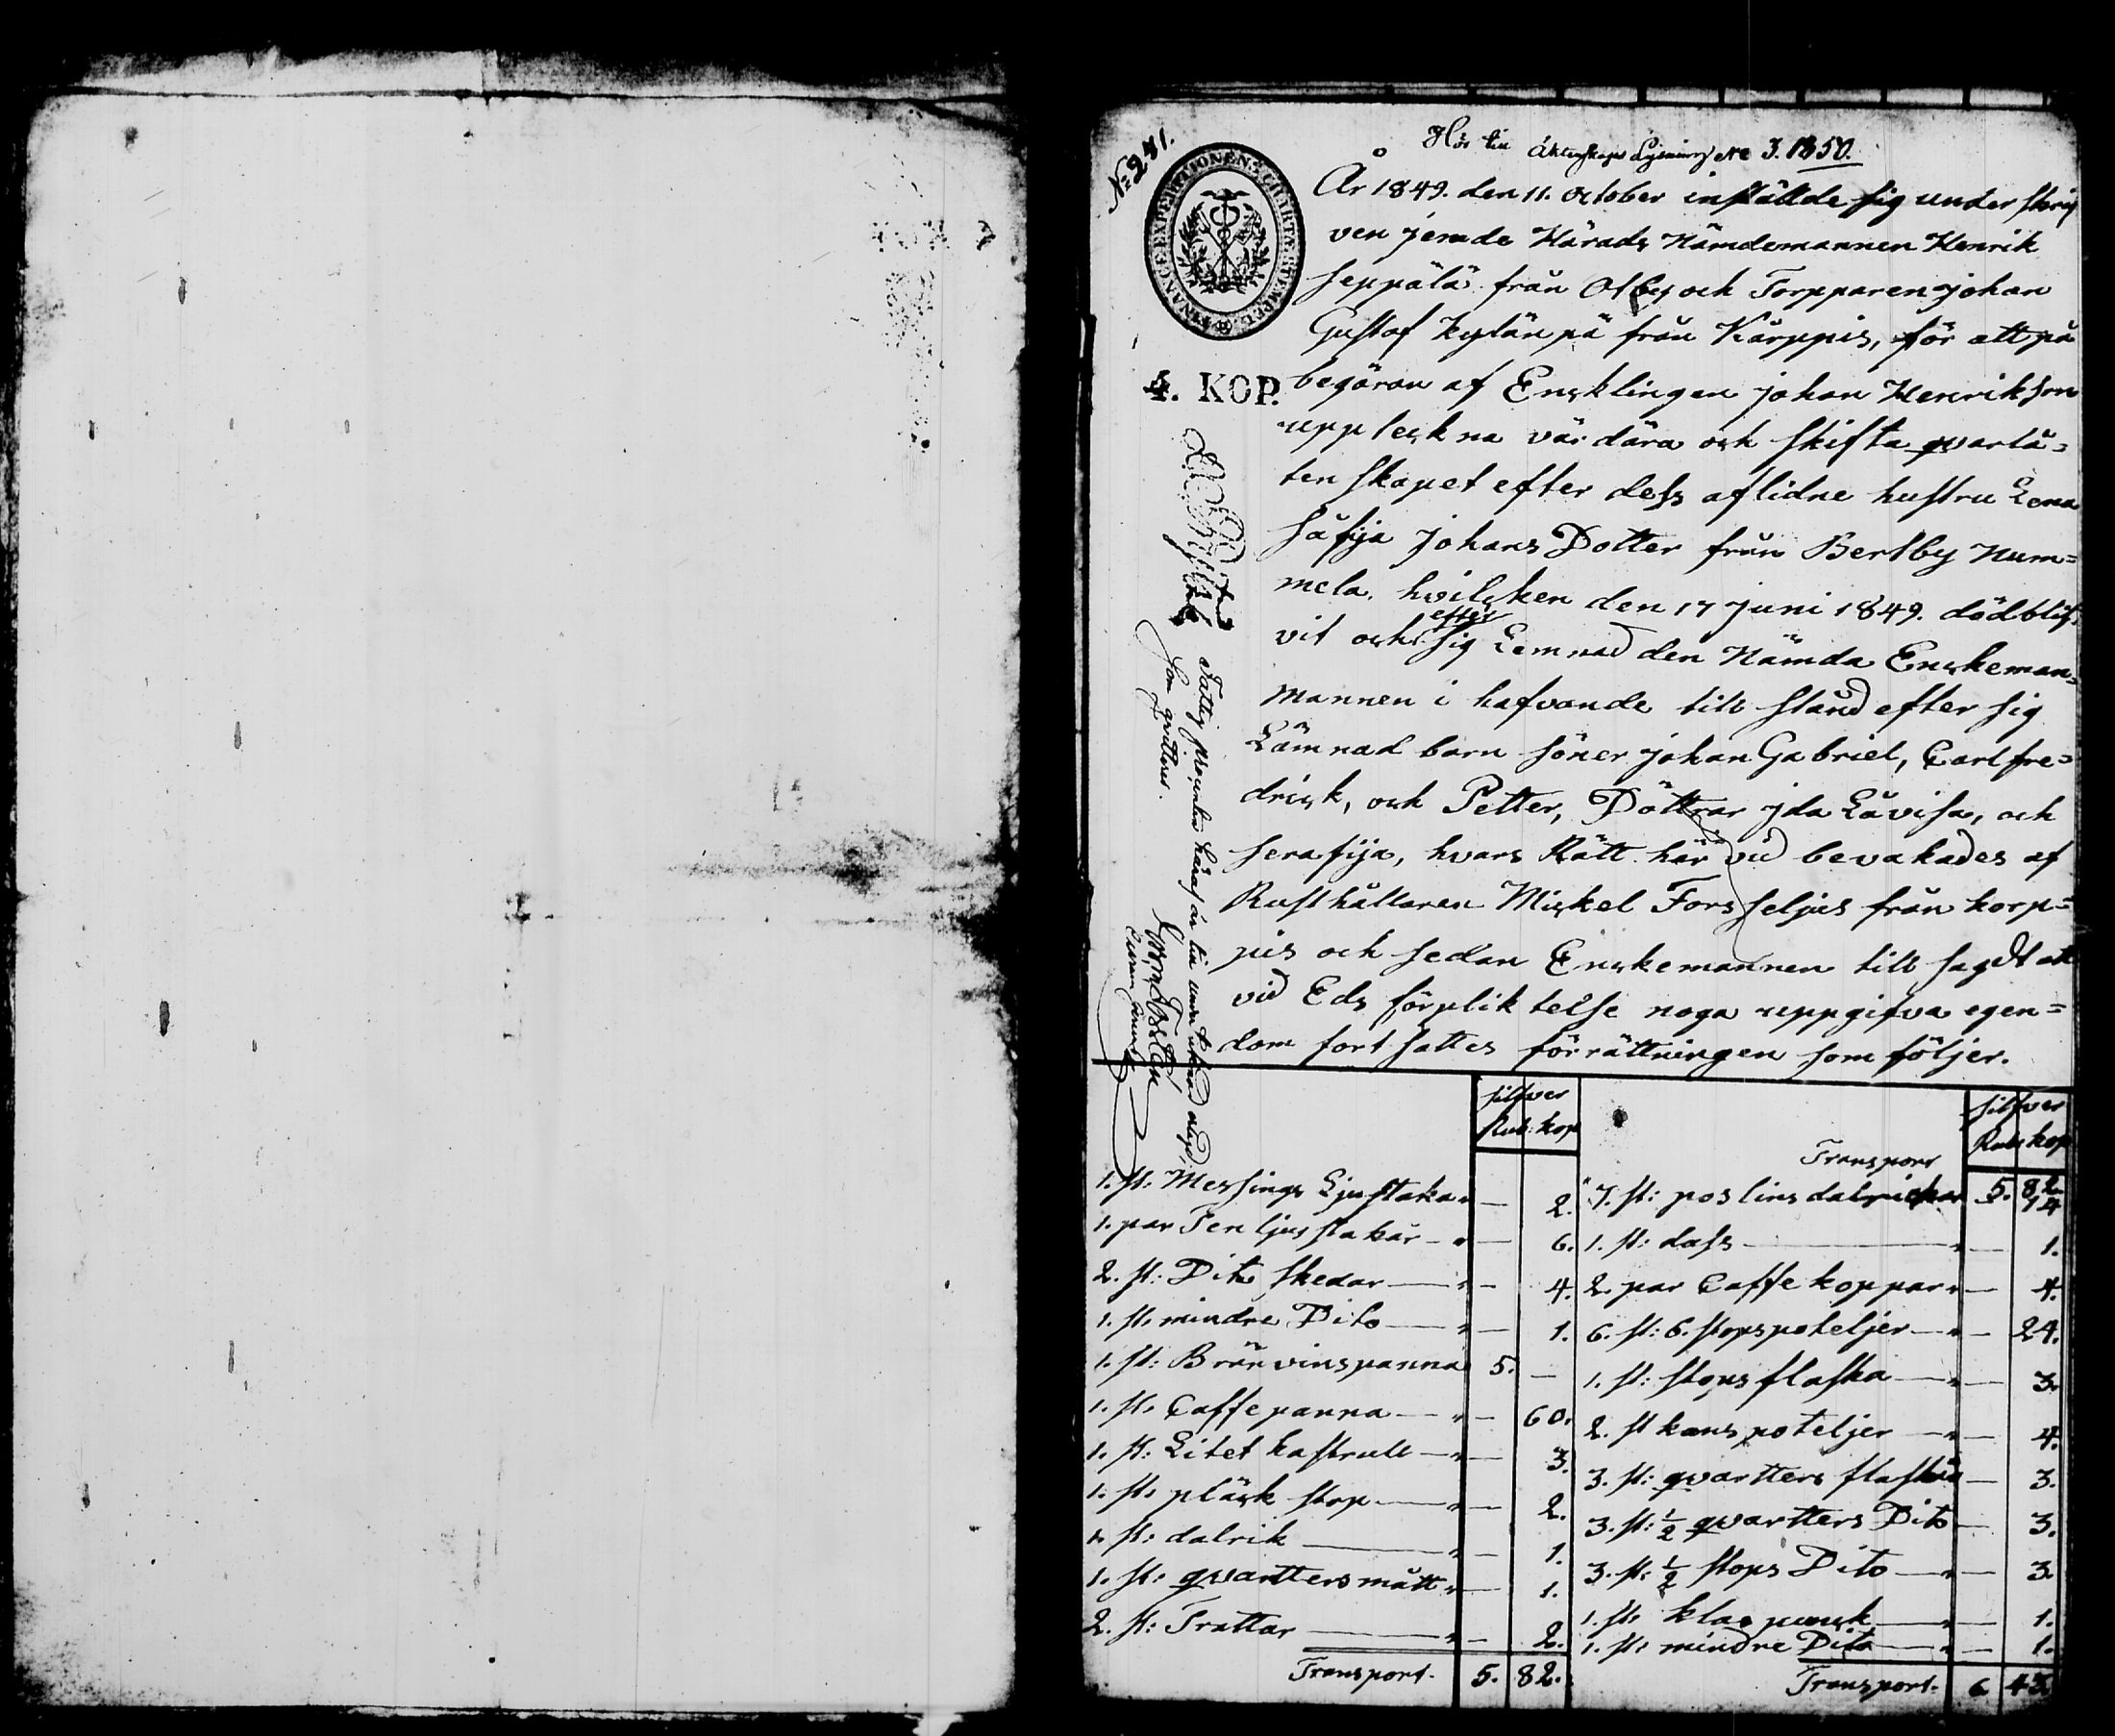 No 281.
Hör till Äktenskaps Lysning No 3. 1850.
FINANCE EXPEDITIONENS CHARTÆ STEMPEL
4. KOP.
År 1849. den 11. October instälde sig under skrif
ven jemde Härads Nämdemannen Henrik
Seppälä från Olby och Torpparen Johan
Gustaf Kylänpä från Kårppis, för att på
begäran af Encklingen Johan Henrikson
uppteckna värdära och skifta qvarlå=
tenskapet efter dess aflidne hustru Lena
Såfija Johans Dotter från Bertby Num=
mela. hvilcken den 17 Juni 1849. död blif
vit och efter sig Lemnad den Nämda Enckeman=
mannen i hafvande till stånd efter sig
Lämnad barn Söner Johan Gabriel, Carl fre=
drick, och Petter, Döttrar Ida Låvisa, och
Serafija, hvars Rätt här vid bevakades af
Rusthållaren Mickel Forsseljus från korp=
pis och sedan Enckemannen till sagdt att
vid Eds förpliktelse noga uppgifva egen=
dom fortsattes förrättningen som följer.
Fattig procenten häraf är till under tecknad erlagd,
som qvitteras.
silfver
Rub. kop
1. st: Messings Ljustaka " — 2.
1. par Ten ljusstakar — " — 6.
2. st: Dito skedar — " — 4.
1. st: mindre Dito — " — 1.
1. st: Bränvinspanna 5. —
1. st: Caffepanna — " — 60.
1. st: Litet kastrull — " — 3.
1. st: pläck stop — " — 2.
1. st: dalrik — " — 1.
1. st: qvartters mått " — 1.
2. st: Trattar — " — 2.
Transport. 5. 82.
silfver
Rub kop
Transport 5. 82
7. st: poslins dalrickar 14
1. st: dass — " — 1.
2. par Caffe koppar " — 4.
6. st: 6. stops poteljer — " — 24.
1. st: stops flaska — " — 3.
2. st kans poteljer — " — 4.
3. st: qvartters flaskor — 3.
3. st: 1/2 qvartters Dito — 3.
3. st: 1/2 stops Dito — " — 3.
1. st: — " — 1.
1. st: mindre Dito — " — 1.
Transport. 6. 43.